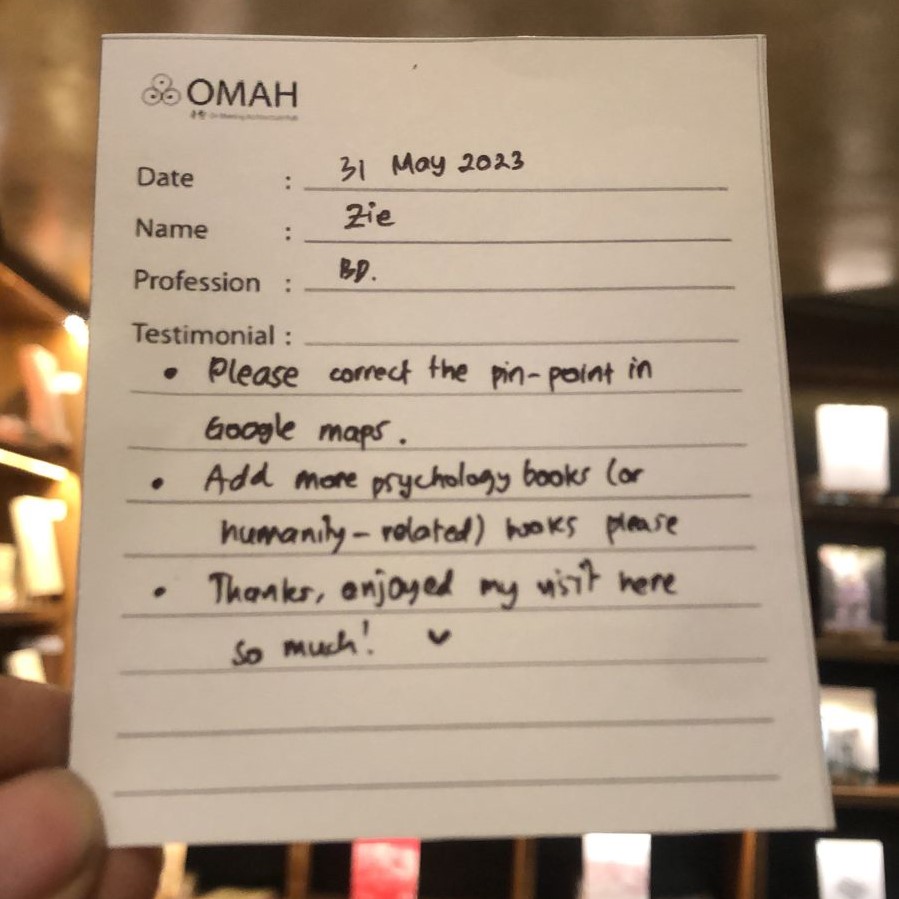 OMAH
Date : 31 May 2023
Name : Zie
Profession : BD.
Testimonial :
• Please correct the pin-point in
Google maps.
• Add more psychology books (or
humanity-related) books please
• Thanks, enjoyed my visit here
so much!